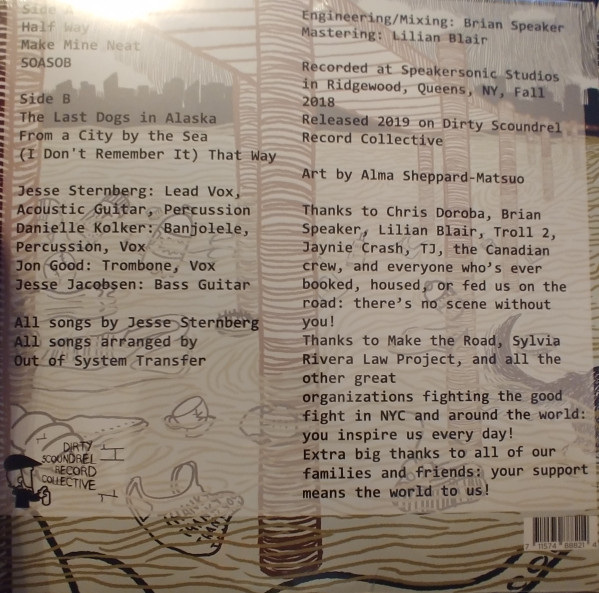 Side A
Half Way
Make Mine Neat
SOASOB
Side B
The Last Dogs in Alaska
From a City by the Sea
(I Don't Remember It) That Way
Jesse Sternberg: Lead Vox,
Acoustic Guitar, Percussion
Danielle Kolker: Banjolele,
Percussion, Vox
Jon Good: Trombone, Vox
Jesse Jacobsen: Bass Guitar
All songs by Jesse Sternberg
All songs arranged by
Out of System Transfer
DIRTY
SCOUNDREL
RECORD
COLLECTIVE
Engineering/Mixing: Brian Speaker
Mastering: Lilian Blair
Recorded at Speakersonic Studios
in Ridgewood, Queens, NY, Fall
2018
Released 2019 on Dirty Scoundrel
Record Collective
Art by Alma Sheppard-Matsuo
Thanks to Chris Doroba, Brian
Speaker, Lilian Blair, Troll 2,
Jaynie Crash, TJ, the Canadian
crew, and everyone who's ever
booked, housed, or fed us on the
road: there's no scene without
you!
Thanks to Make the Road, Sylvia
Rivera Law Project, and all the
other great
organizations fighting the good
fight in NYC and around the world:
you inspire us every day!
Extra big thanks to all of our
families and friends: your support
means the world to us!
7 11574 88821 4